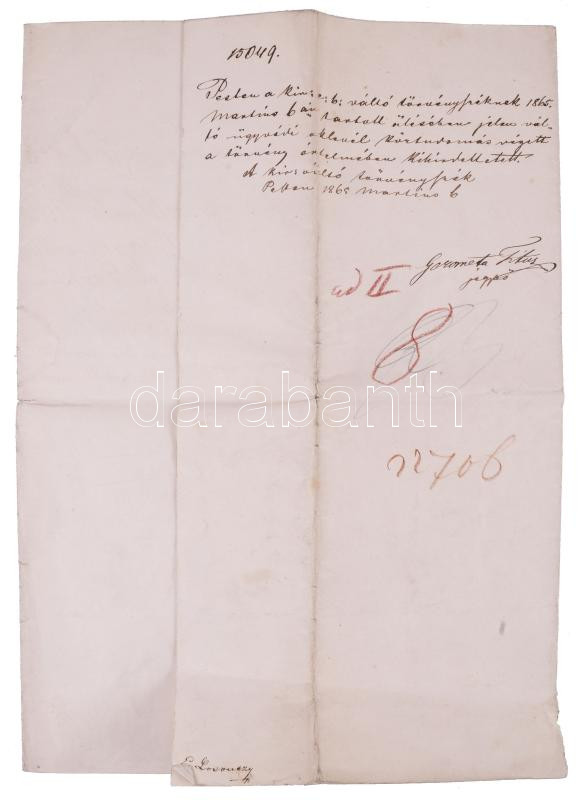 15049.
Pesten a kir: e: b: váltó törvényszéknek 1865.
Martius 6 án tartott ülésében jelen vál-
tó ügyvédi oklevél köztudomás végett
a törvény értelmében kihirdettetett.
A kir: váltó törvényszék
Pesten 1865 Martius 6
Titus
jegyző
ad II
8
darabanth
12706
Losonczy